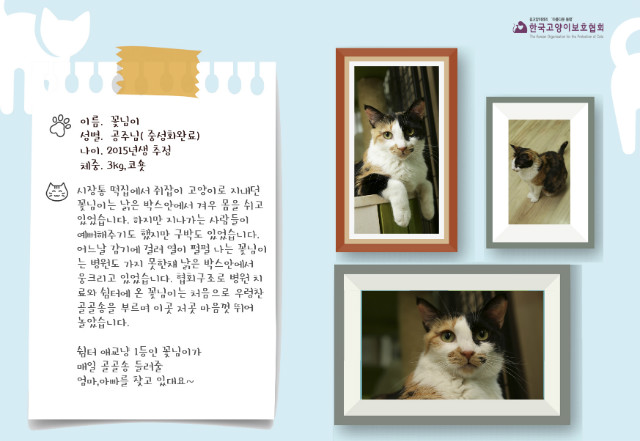 길고양이에게 '아름다운 동행'
한국고양이보호협회
The Korean Organization for the Protection of Cats
이름. 꽃님이
성별. 공주님( 중성화완료)
나이. 2015년생 추정
체중. 3kg,코숏
시장통 떡집에서 쥐잡이 고양이로 지내던
꽃님이는 낡은 박스안에서 겨우 몸을 쉬고
있었습니다. 하지만 지나가는 사람들이
예뻐해주기도 했지만 구박도 있었습니다.
어느날 감기에 걸려 열이 펄펄 나는 꽃님이
는 병원도 가지 못한채 낡은 박스안에서
웅크리고 있었습니다. 협회구조로 병원 치
료와 쉼터에 온 꽃님이는 처음으로 우렁찬
골골송을 부르며 이곳 저곳 마음껏 뛰어
놀았습니다.
쉼터 애교냥 1등인 꽃님이가
매일 골골송 들려줄
엄마,아빠를 찾고 있대요~